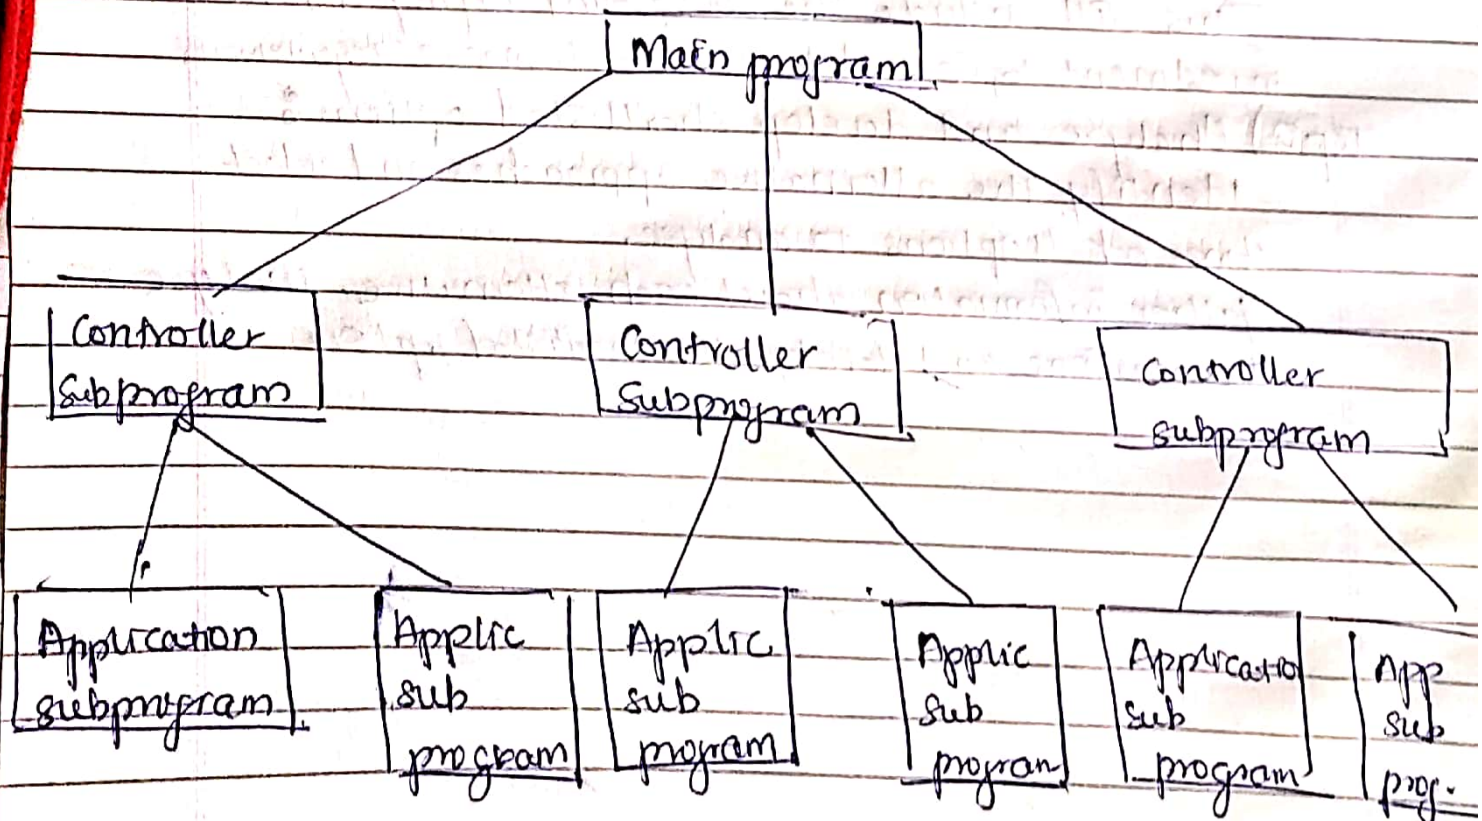 Main program
Controller
Subprogram
Controller
Subprogram
Controller
subprogram
Application
subprogram
Applic
sub
program
Applic
sub
program
Applic
Sub
progran
Applicatio
Sub
program
App
sub
prog.